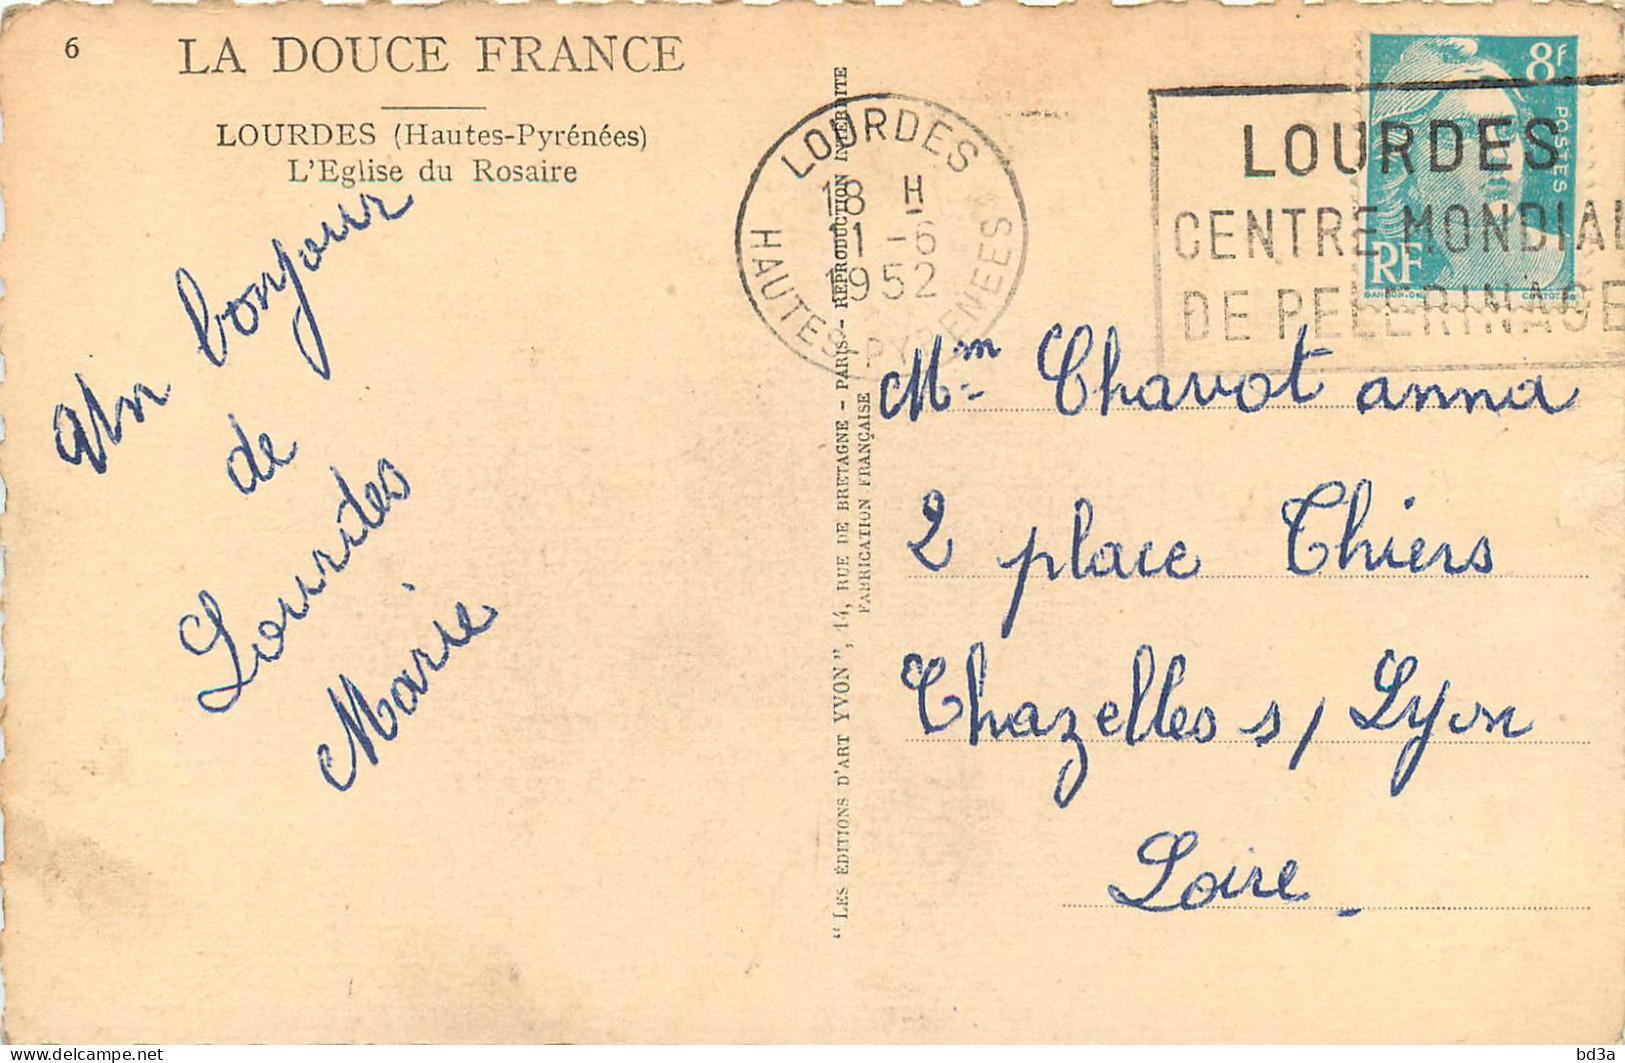 6
LA DOUCE FRANCE
LOURDES (Hautes-Pyrénées)
L'Eglise du Rosaire
Un bonjour
de
Lourdes
Marie
"LES ÉDITIONS D'ART YVON", 14, RUE DE BRETAGNE - PARIS - REPRODUCTION INTERDITE
FABRICATION FRANÇAISE
LOURDES
18 H
11-6
1952
HAUTES-PYRENEES
LOURDES
CENTRE MONDIAL
DE PELERINAGE
8F
POSTES
RF
GANDON
Mme Chavot anna
2 place Thiers
Chazelles s/ Lyon
Loire
delcampe.net
bd3a